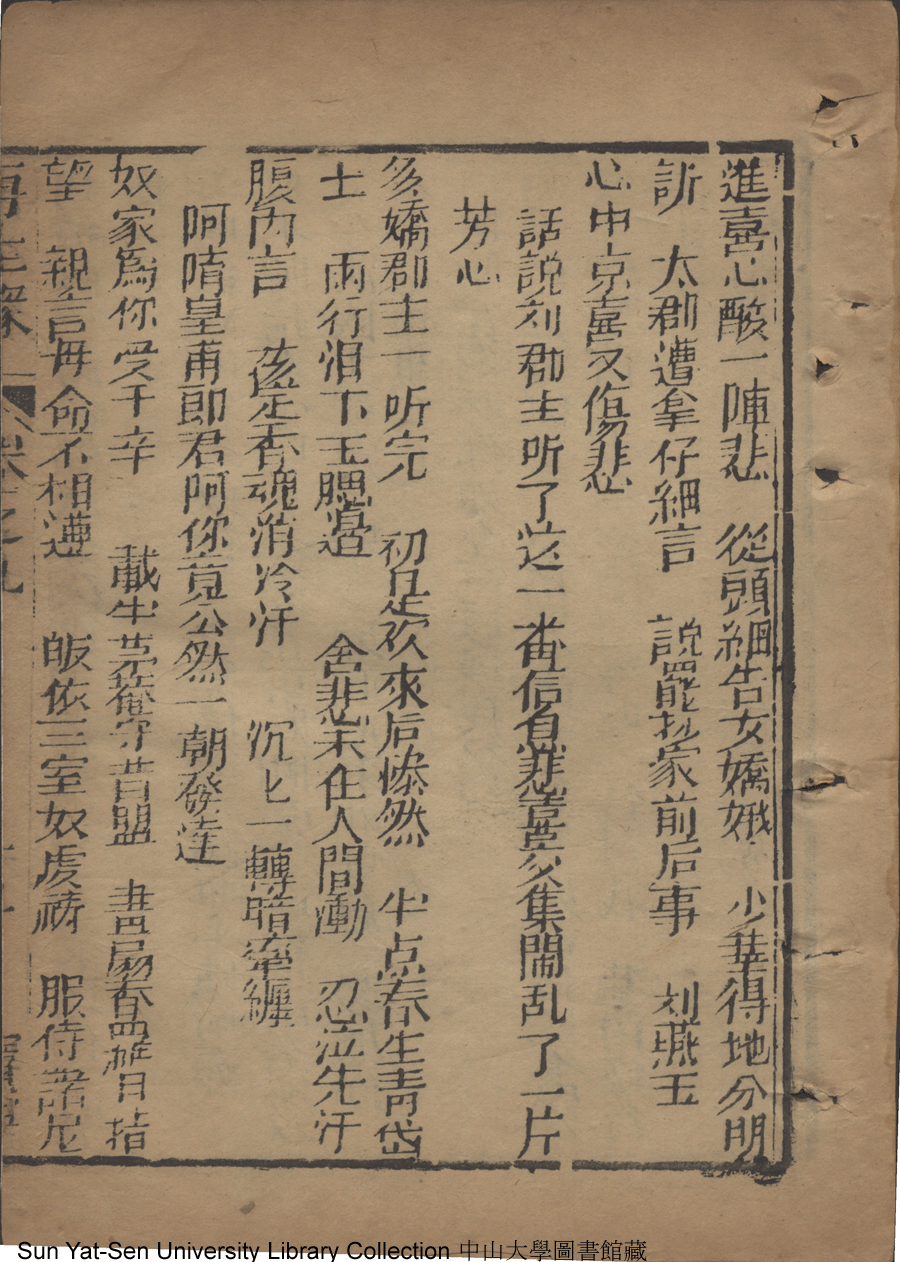 進喜心酸一陣悲　從頭細告女嬌娥　少華得地分明
訴　太郡遭拿仔細言　說罷抄家前后事　刘燕玉
心中京喜又傷悲
話說刘郡主听了这一番信息悲喜交集閙乱了一片
芳心
多嬌郡主一听完　初是欢來后慘然　半点春生青岱
士　雨行泪下玉腮邉　舍悲未住人間慟　忍泣先汗
腹内言　孩是香魂消冷汗　沉匕一轉暗牽纏
阿隋皇甫郎君阿你竟公然一朝發達
奴家為你受千辛　載半菴守昔盟　畫扇春羅日指
望　親言母命不相遵　皈依三室奴虔禱　服侍諸尼
再生緣　卷之九
Sun Yat-Sen University Library Collection 中山大學圖書館藏